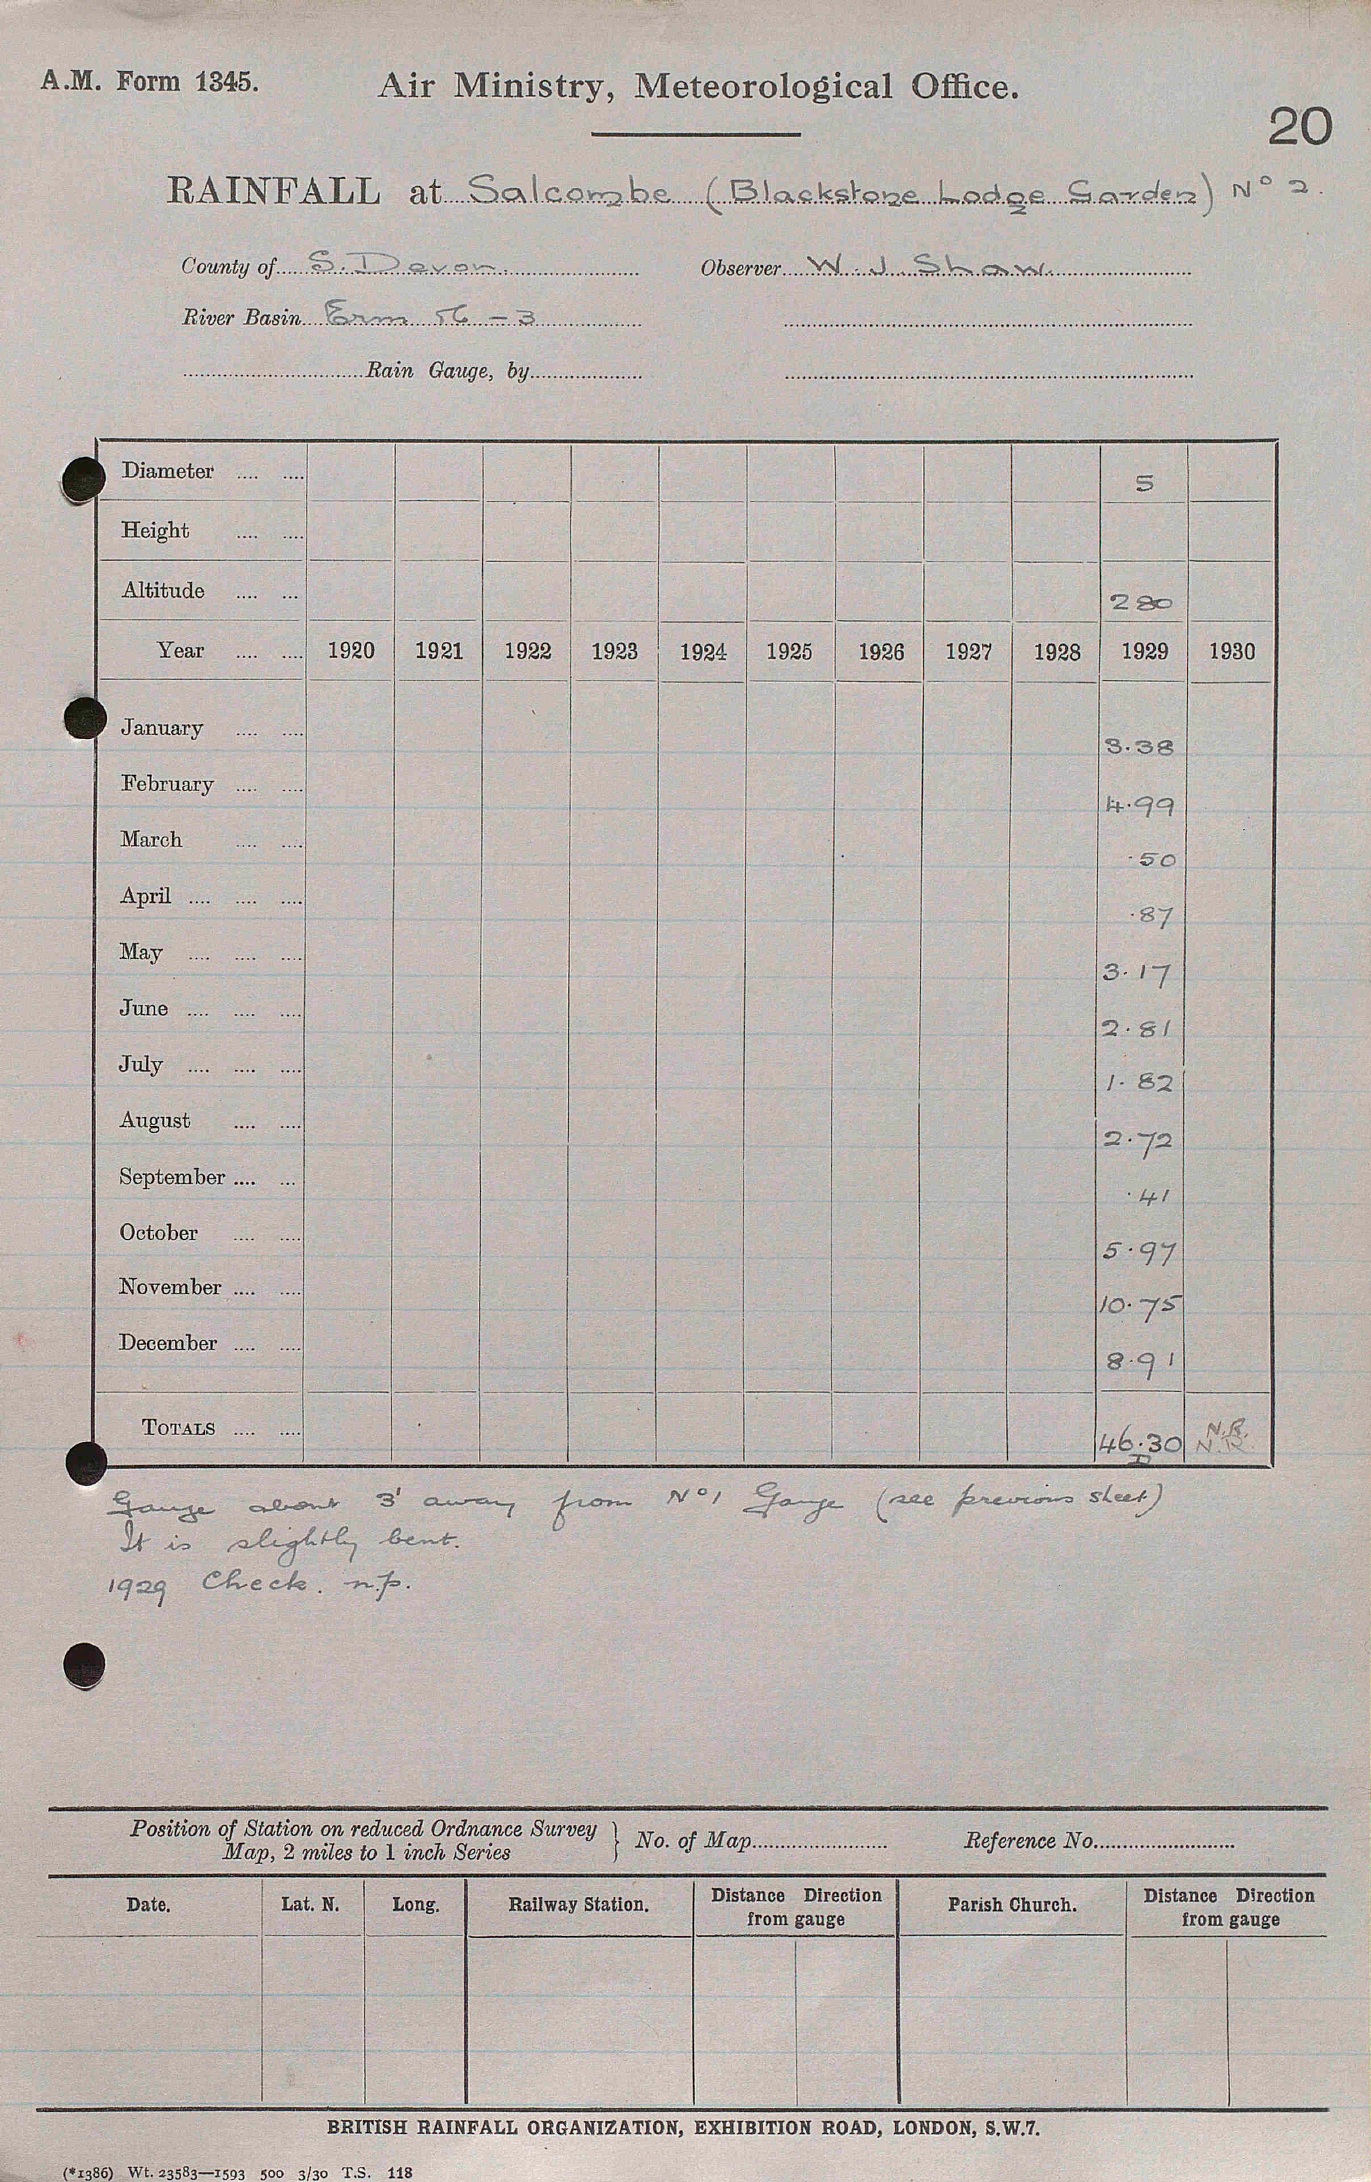 A.M. Form 1345. Air Ministry, Meteorological Office.
20
RAINFALL at Salcombe (Blackstone Lodge Garden) No 2.
County of S. Devon. Observer W. J. Shaw.
River Basin Erm 56 - 3
Rain Gauge, by
Diameter .... .... 5
Height .... ....
Altitude .... ... 280
Year .... .... 1920 1921 1922 1923 1924 1925 1926 1927 1928 1929 1930
January .... .... 3.38
February .... .... 4.99
March .... .... .50
April .... .... .... .87
May .... .... .... 3.17
June .... .... .... 2.81
July .... .... .... 1.82
August .... .... 2.72
September .... ... .41
October .... .... 5.97
November .... .... 10.75
December .... .... 8.91
TOTALS .... .... 46.30 N.R. N.R.
I
Gauge about 3' away from No 1 Gauge (see previous sheet)
It is slightly bent.
1929 Check. n.p.
Position of Station on reduced Ordnance Survey Map, 2 miles to 1 inch Series } No. of Map Reference No.
Date. Lat. N. Long. Railway Station. Distance Direction from gauge Parish Church. Distance Direction from gauge
BRITISH RAINFALL ORGANIZATION, EXHIBITION ROAD, LONDON, S.W.7.
(*1386) Wt. 23583—1593 500 3/30 T.S. 118